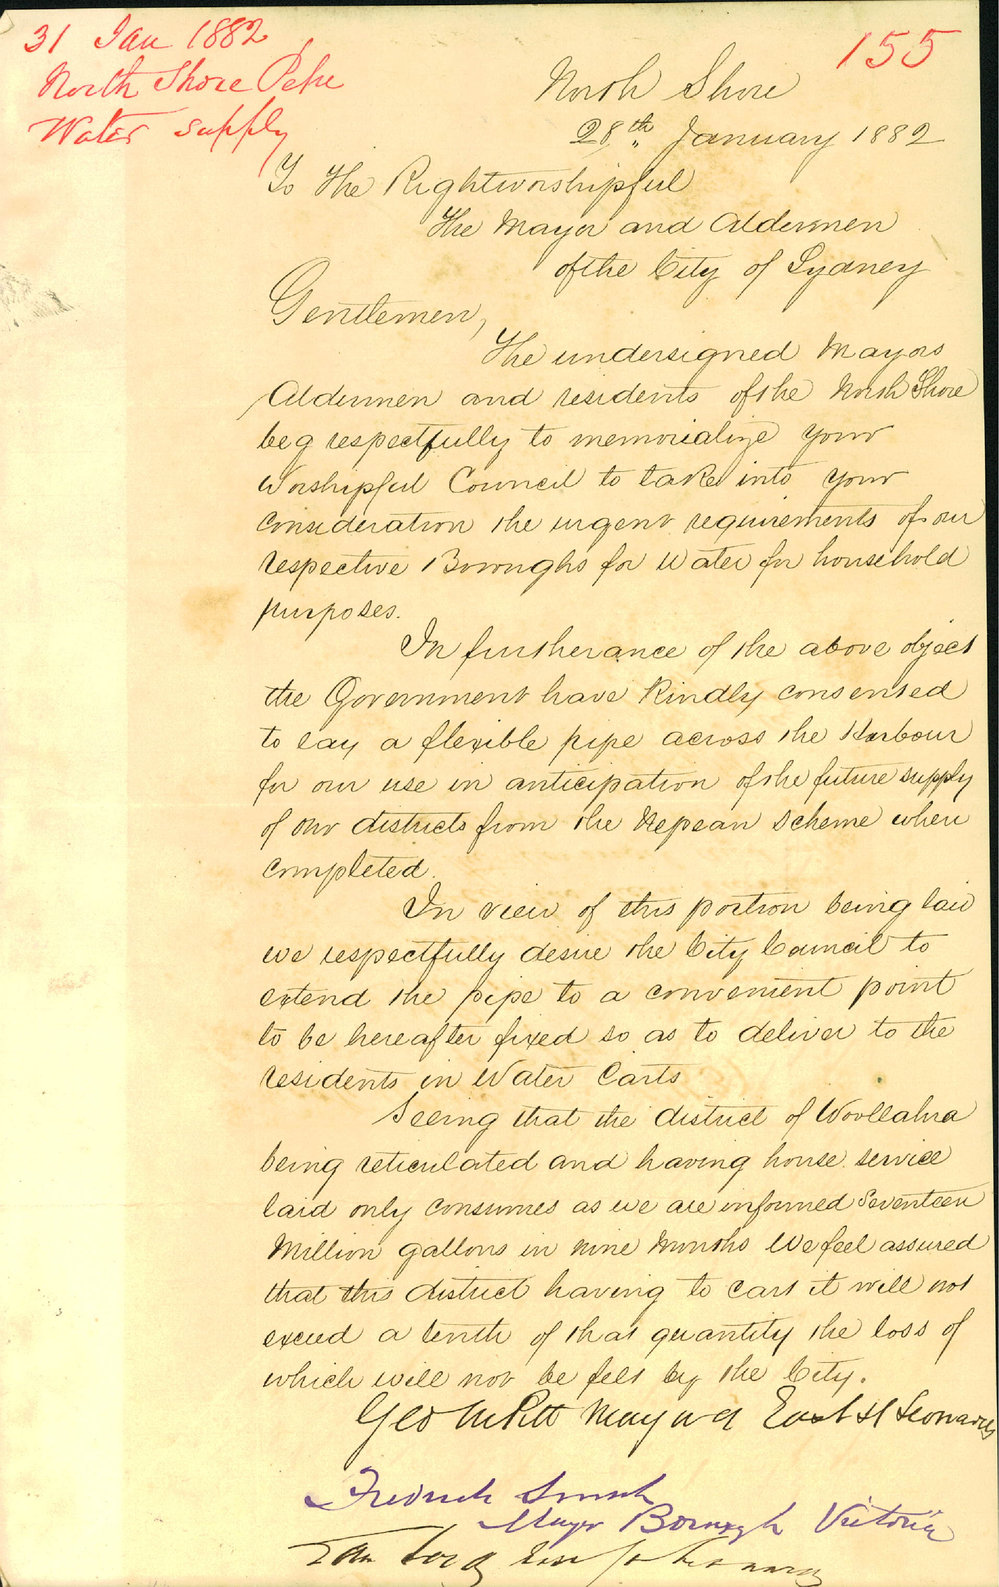 31 Jan 1882
North Shore Petn
Water Supply
155
North Shore
28th January 1882
To the Rightworshipful
The Mayor and Aldermen
of the City of Sydney
Gentlemen,
The undersigned Mayors
Aldermen and residents of the North Shore
beg respectfully to memorialize your
Worshipful Council to take into your
consideration the urgent requirements of our
respective Boroughs for Water for household
purposes.
In furtherance of the above object
the Government have kindly consented
to lay a flexible pipe across the Harbour
for our use in anticipation of the future supply
of our districts from the Nepean Scheme when
completed.
In view of this portion being laid
we respectfully desire the City Council to
extend the pipe to a convenient point
to be hereafter fixed so as to deliver to the
residents in Water Carts
Seeing that the district of Woollahra
being reticulated and having house service
laid only consumes as we are informed Seventeen
Million gallons in nine months We feel assured
that this district having to cart it will not
exceed a tenth of that quantity the loss of
which will not be felt by the City.
Geo Mayor East St Leonards
Fredrick Smith
Mayor Borough Victoria